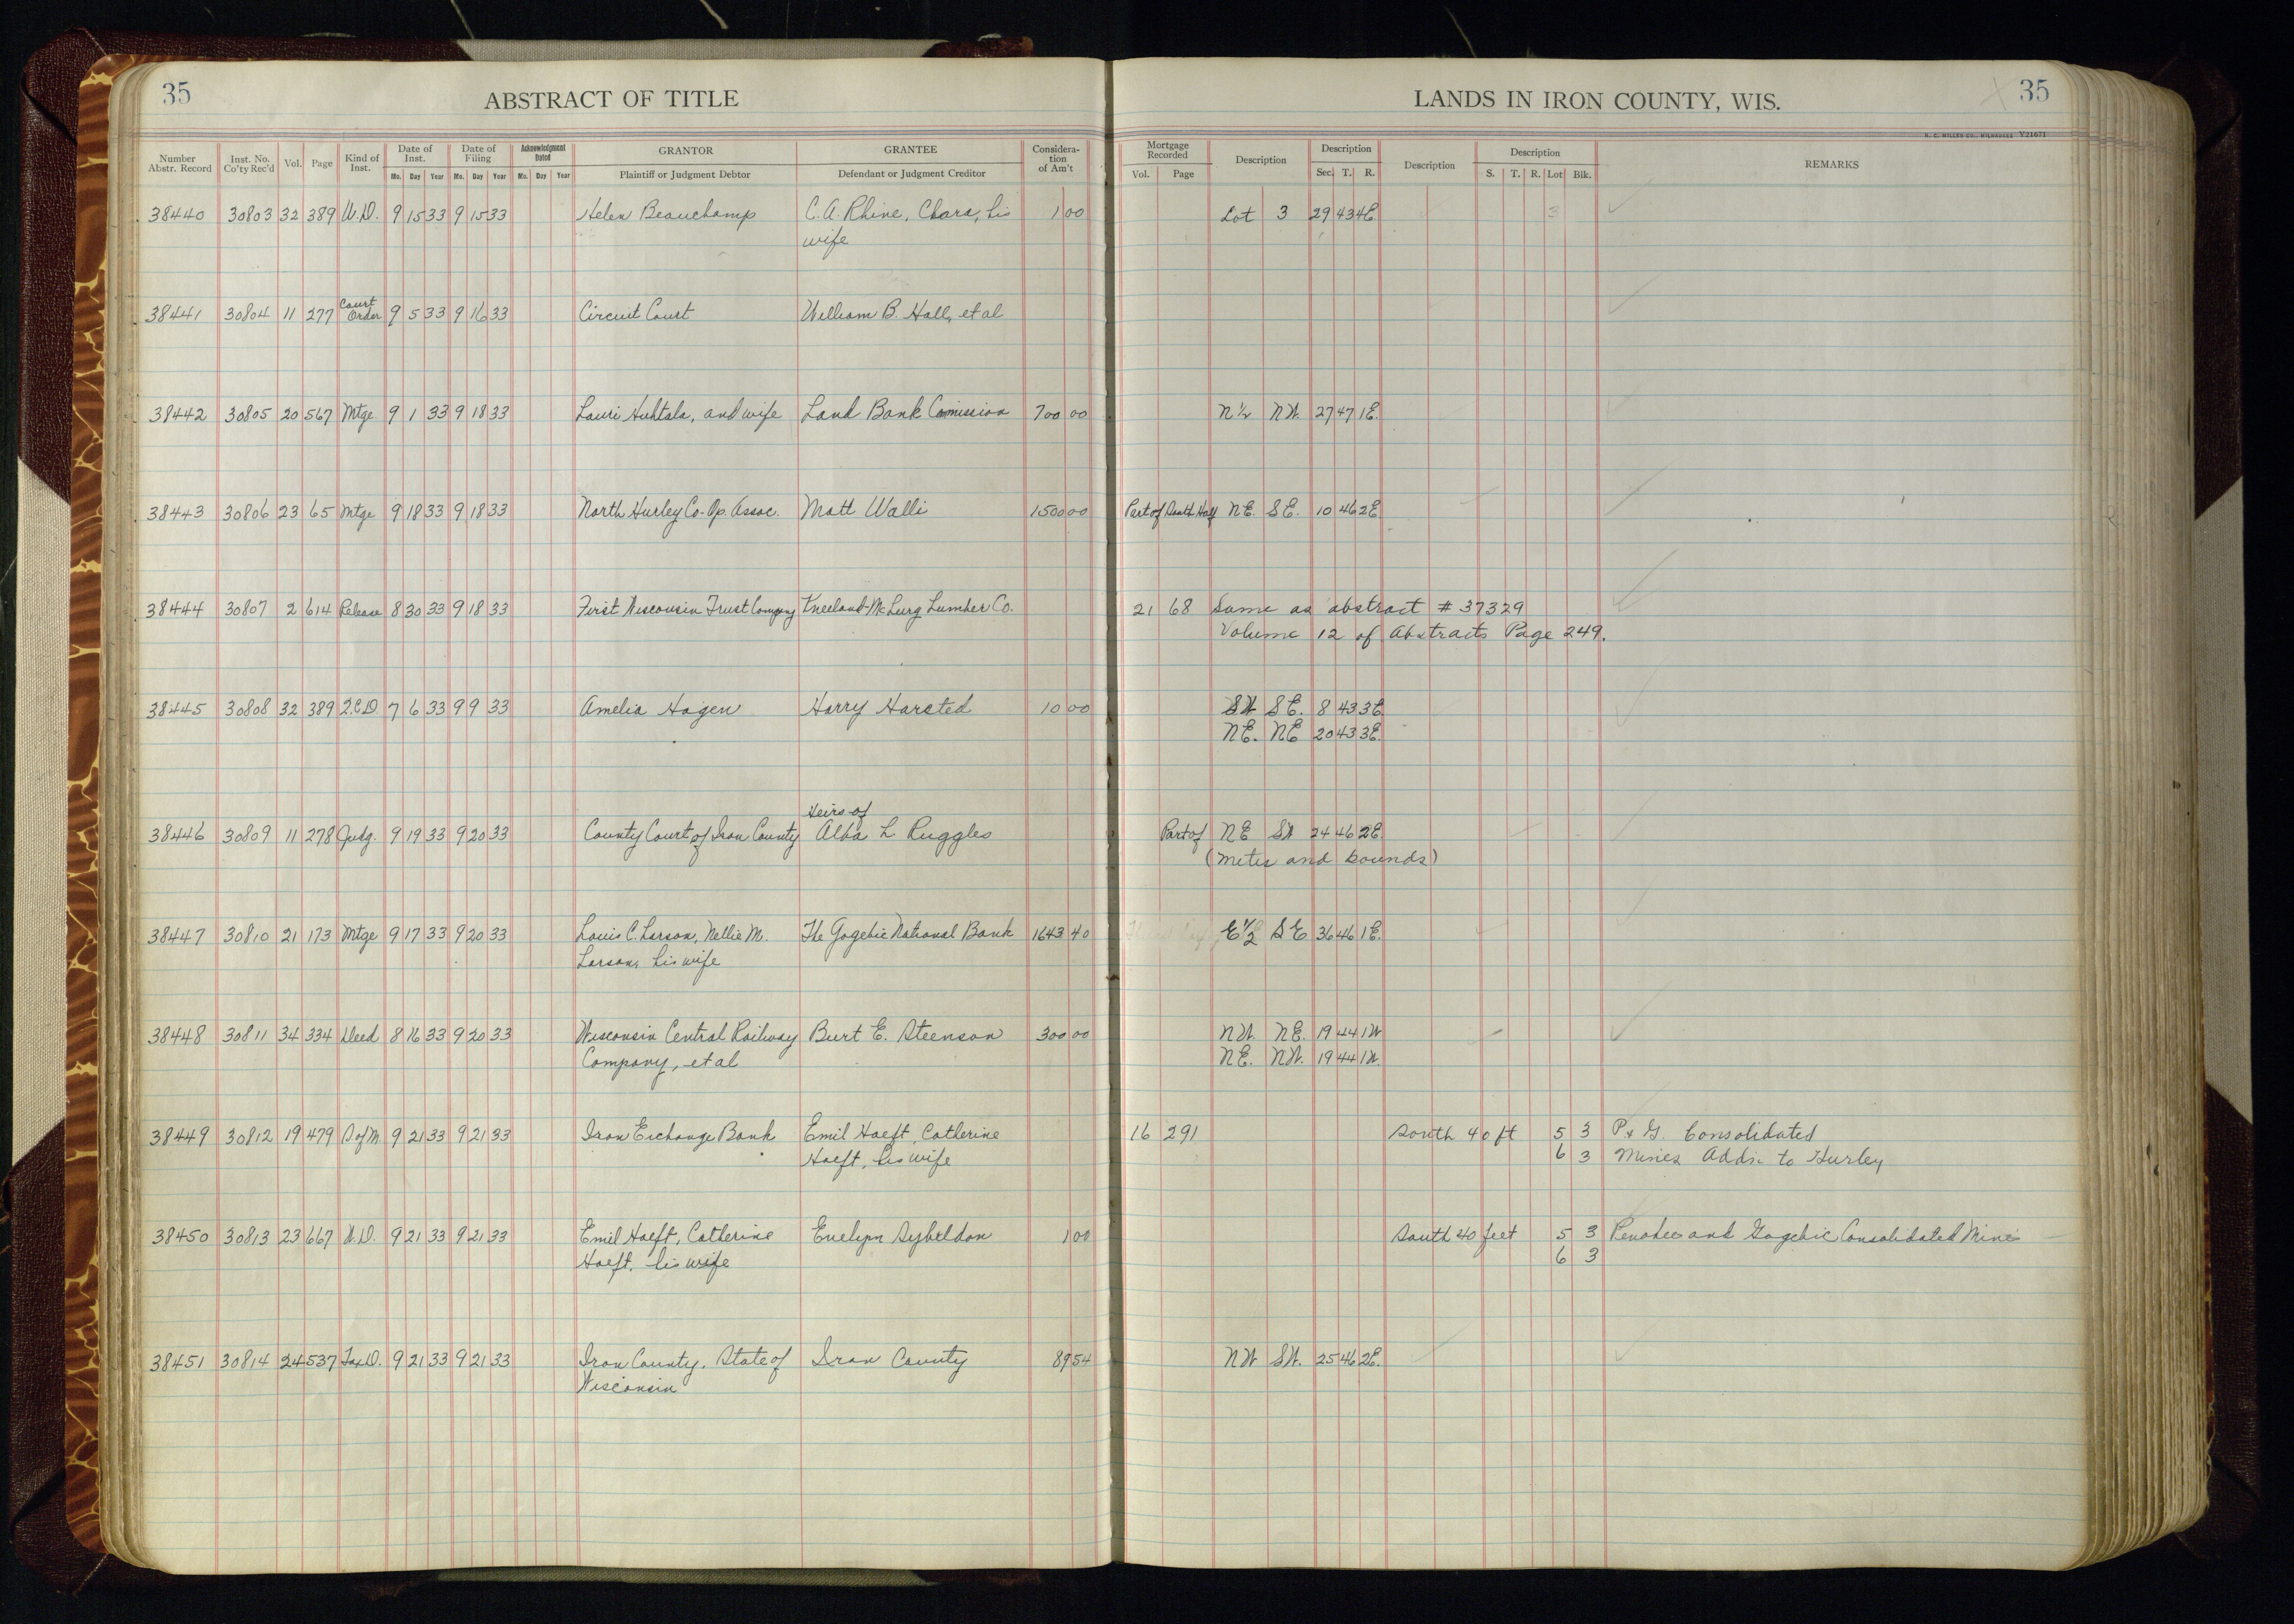 35
ABSTRACT OF TITLE
LANDS IN IRON COUNTY, WIS.
35
H. C. MILLER CO., MILWAUKEE Y21671
Number Abstr. Record Inst. No. Co'ty Rec'd Vol. Page Kind of Inst. Date of Inst. Mo. Day Year Date of Filing Mo. Day Year Acknowledgment Dated Mo. Day Year GRANTOR Plaintiff or Judgment Debtor GRANTEE Defendant or Judgment Creditor Consideration of Am't
Mortgage Recorded Vol. Page Description Description Sec. T. R. Description Description S. T. R. Lot Blk. REMARKS
38440 30803 32 389 W.D. 9 15 33 9 15 33 Helen Beauchamp C. A. Rhine, Chara, his 1 00 Lot 3 29 43 4E 3
wife
38441 30804 11 277 Court Order 9 5 33 9 16 33 Circuit Court William B. Hall, et al
38442 30805 20 567 Mtge 9 1 33 9 18 33 Lauri Huhtala, and wife Land Bank Comission 700 00 N½ NW. 27 47 1E.
38443 30806 23 65 Mtge 9 18 33 9 18 33 North Hurley Co-Op. Assoc. Matt Walli 1500 00 Part of South Half NE. SE. 10 46 2E
38444 30807 2 614 Release 8 30 33 9 18 33 First Wisconsin Trust Company Kneeland-McLurg Lumber Co. 21 68 Same as abstract # 37329
Volume 12 of Abstracts Page 249.
38445 30808 32 389 Q.C.D 7 6 33 9 9 33 Amelia Hagen Harry Harsted 10 00 SW SE. 8 43 3E
NE. NE 20 43 3E.
Heirs of
38446 30809 11 278 Judg. 9 19 33 9 20 33 County Court of Iron County Alba L Ruggles Part of NE SW 24 46 2E.
(Metes and bounds)
38447 30810 21 173 Mtge 9 17 33 9 20 33 Louis C. Larson, Nellie M. The Gogebic National Bank 1643 40 E½ SE 36 46 1E.
Larson, his wife
38448 30811 34 334 Deed 8 16 33 9 20 33 Wisconsin Central Railway Burt E. Steenson 300 00 NW. NE. 19 44 1W
Company, et al NE. NW. 19 44 1W.
38449 30812 19 479 S.ofM. 9 21 33 9 21 33 Iron Exchange Bank Emil Hoeft, Catherine 16 291 South 40 ft 5 3 P. & G. Consolidated
Hoeft, his wife 6 3 Mines Addn to Hurley
38450 30813 23 667 W.D. 9 21 33 9 21 33 Emil Hoeft, Catherine Evelyn Sybeldon 1 00 South 40 feet 5 3 Penokee and Gogebic Consolidated Mines
Hoeft, his wife 6 3
38451 30814 24 537 Tax D. 9 21 33 9 21 33 Iron County, State of Iron County 89 54 NW SW. 25 46 2E.
Wisconsin